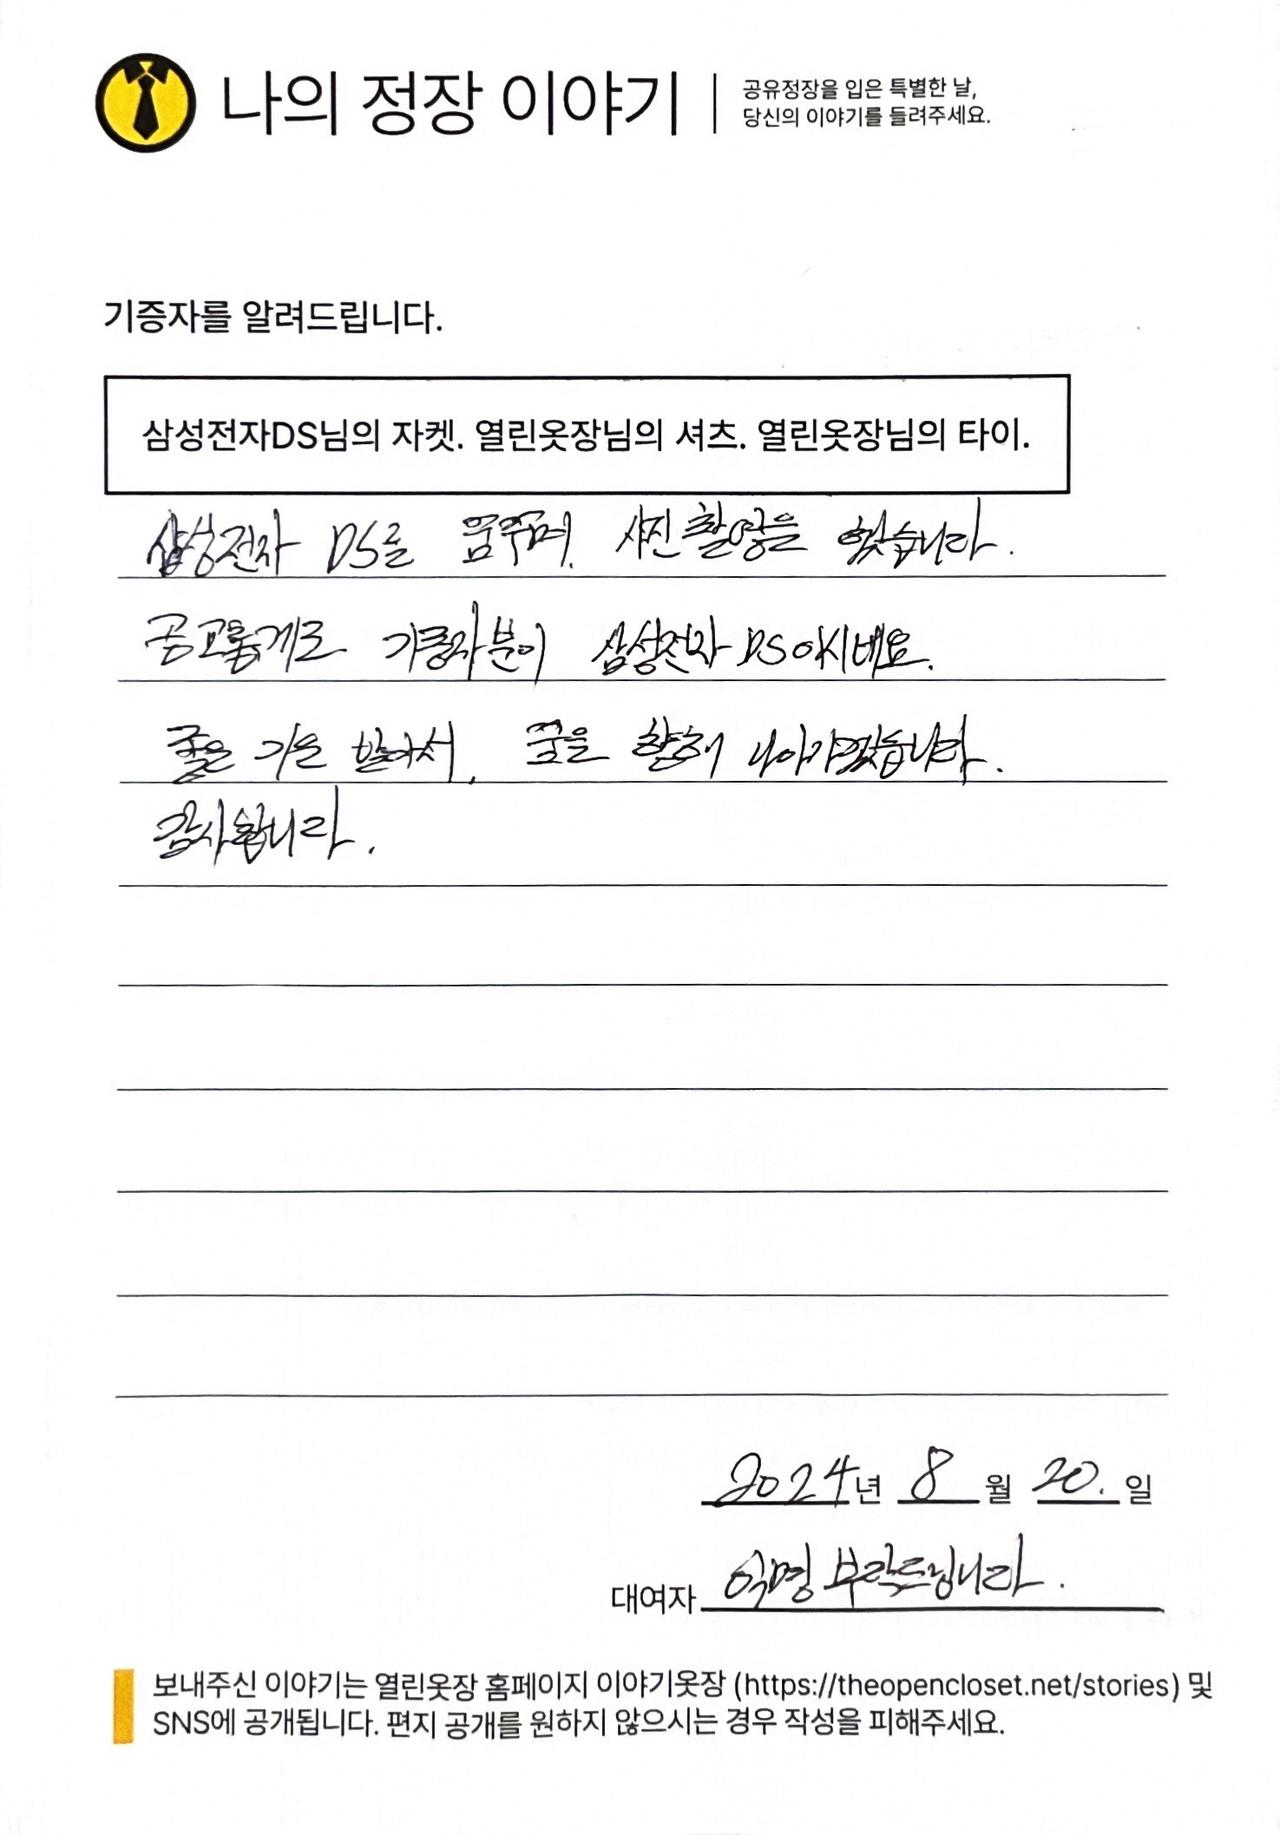 나의 정장 이야기
공유정장을 입은 특별한 날,
당신의 이야기를 들려주세요.
기증자를 알려드립니다.
삼성전자DS님의 자켓. 열린옷장님의 셔츠. 열린옷장님의 타이.
삼성전자 DS를 꿈꾸며, 사진촬영을 했습니다.
공교롭게도 기증자분이 삼성전자 DS이시네요.
좋은 기운 받아서, 꿈을 향해 나아가겠습니다.
감사합니다.
2024년 8월 20. 일
대여자 익명 부탁드립니다.
보내주신 이야기는 열린옷장 홈페이지 이야기옷장 (https://theopencloset.net/stories) 및
SNS에 공개됩니다. 편지 공개를 원하지 않으시는 경우 작성을 피해주세요.